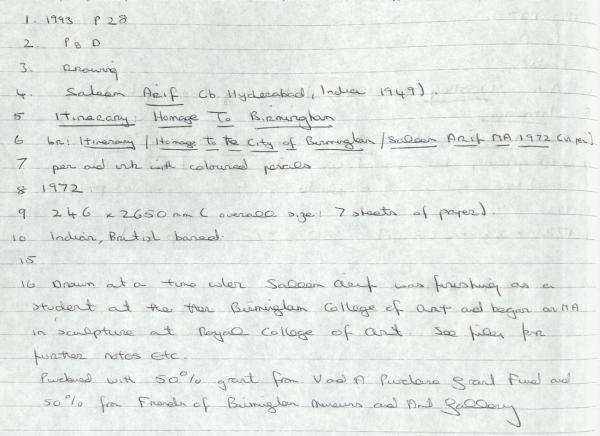 1. 1993 P 28
2. P & D
3. Drawing
4. Saleem Arif (b. Hyderabad, India 1949).
5 Itinerary: Homage To Birmingham
6 br: Itinerary / Homage to the City of Birmingham / Saleem Arif MA 1972 (in pen)
7 pen and ink with coloured pencils
8 1972.
9 246 x 2650 mm (overall size: 7 sheets of paper).
10 Indian, British based.
15
16 Drawn at a time when Saleem Arif was finishing as a
student at the then Birmingham College of Art and began an MA
in sculpture at Royal College of Art. See files for
further notes etc.
Purchased with 50% grant from V and A Purchase Grant Fund and
50% from Friends of Birmingham Museums and Art Gallery